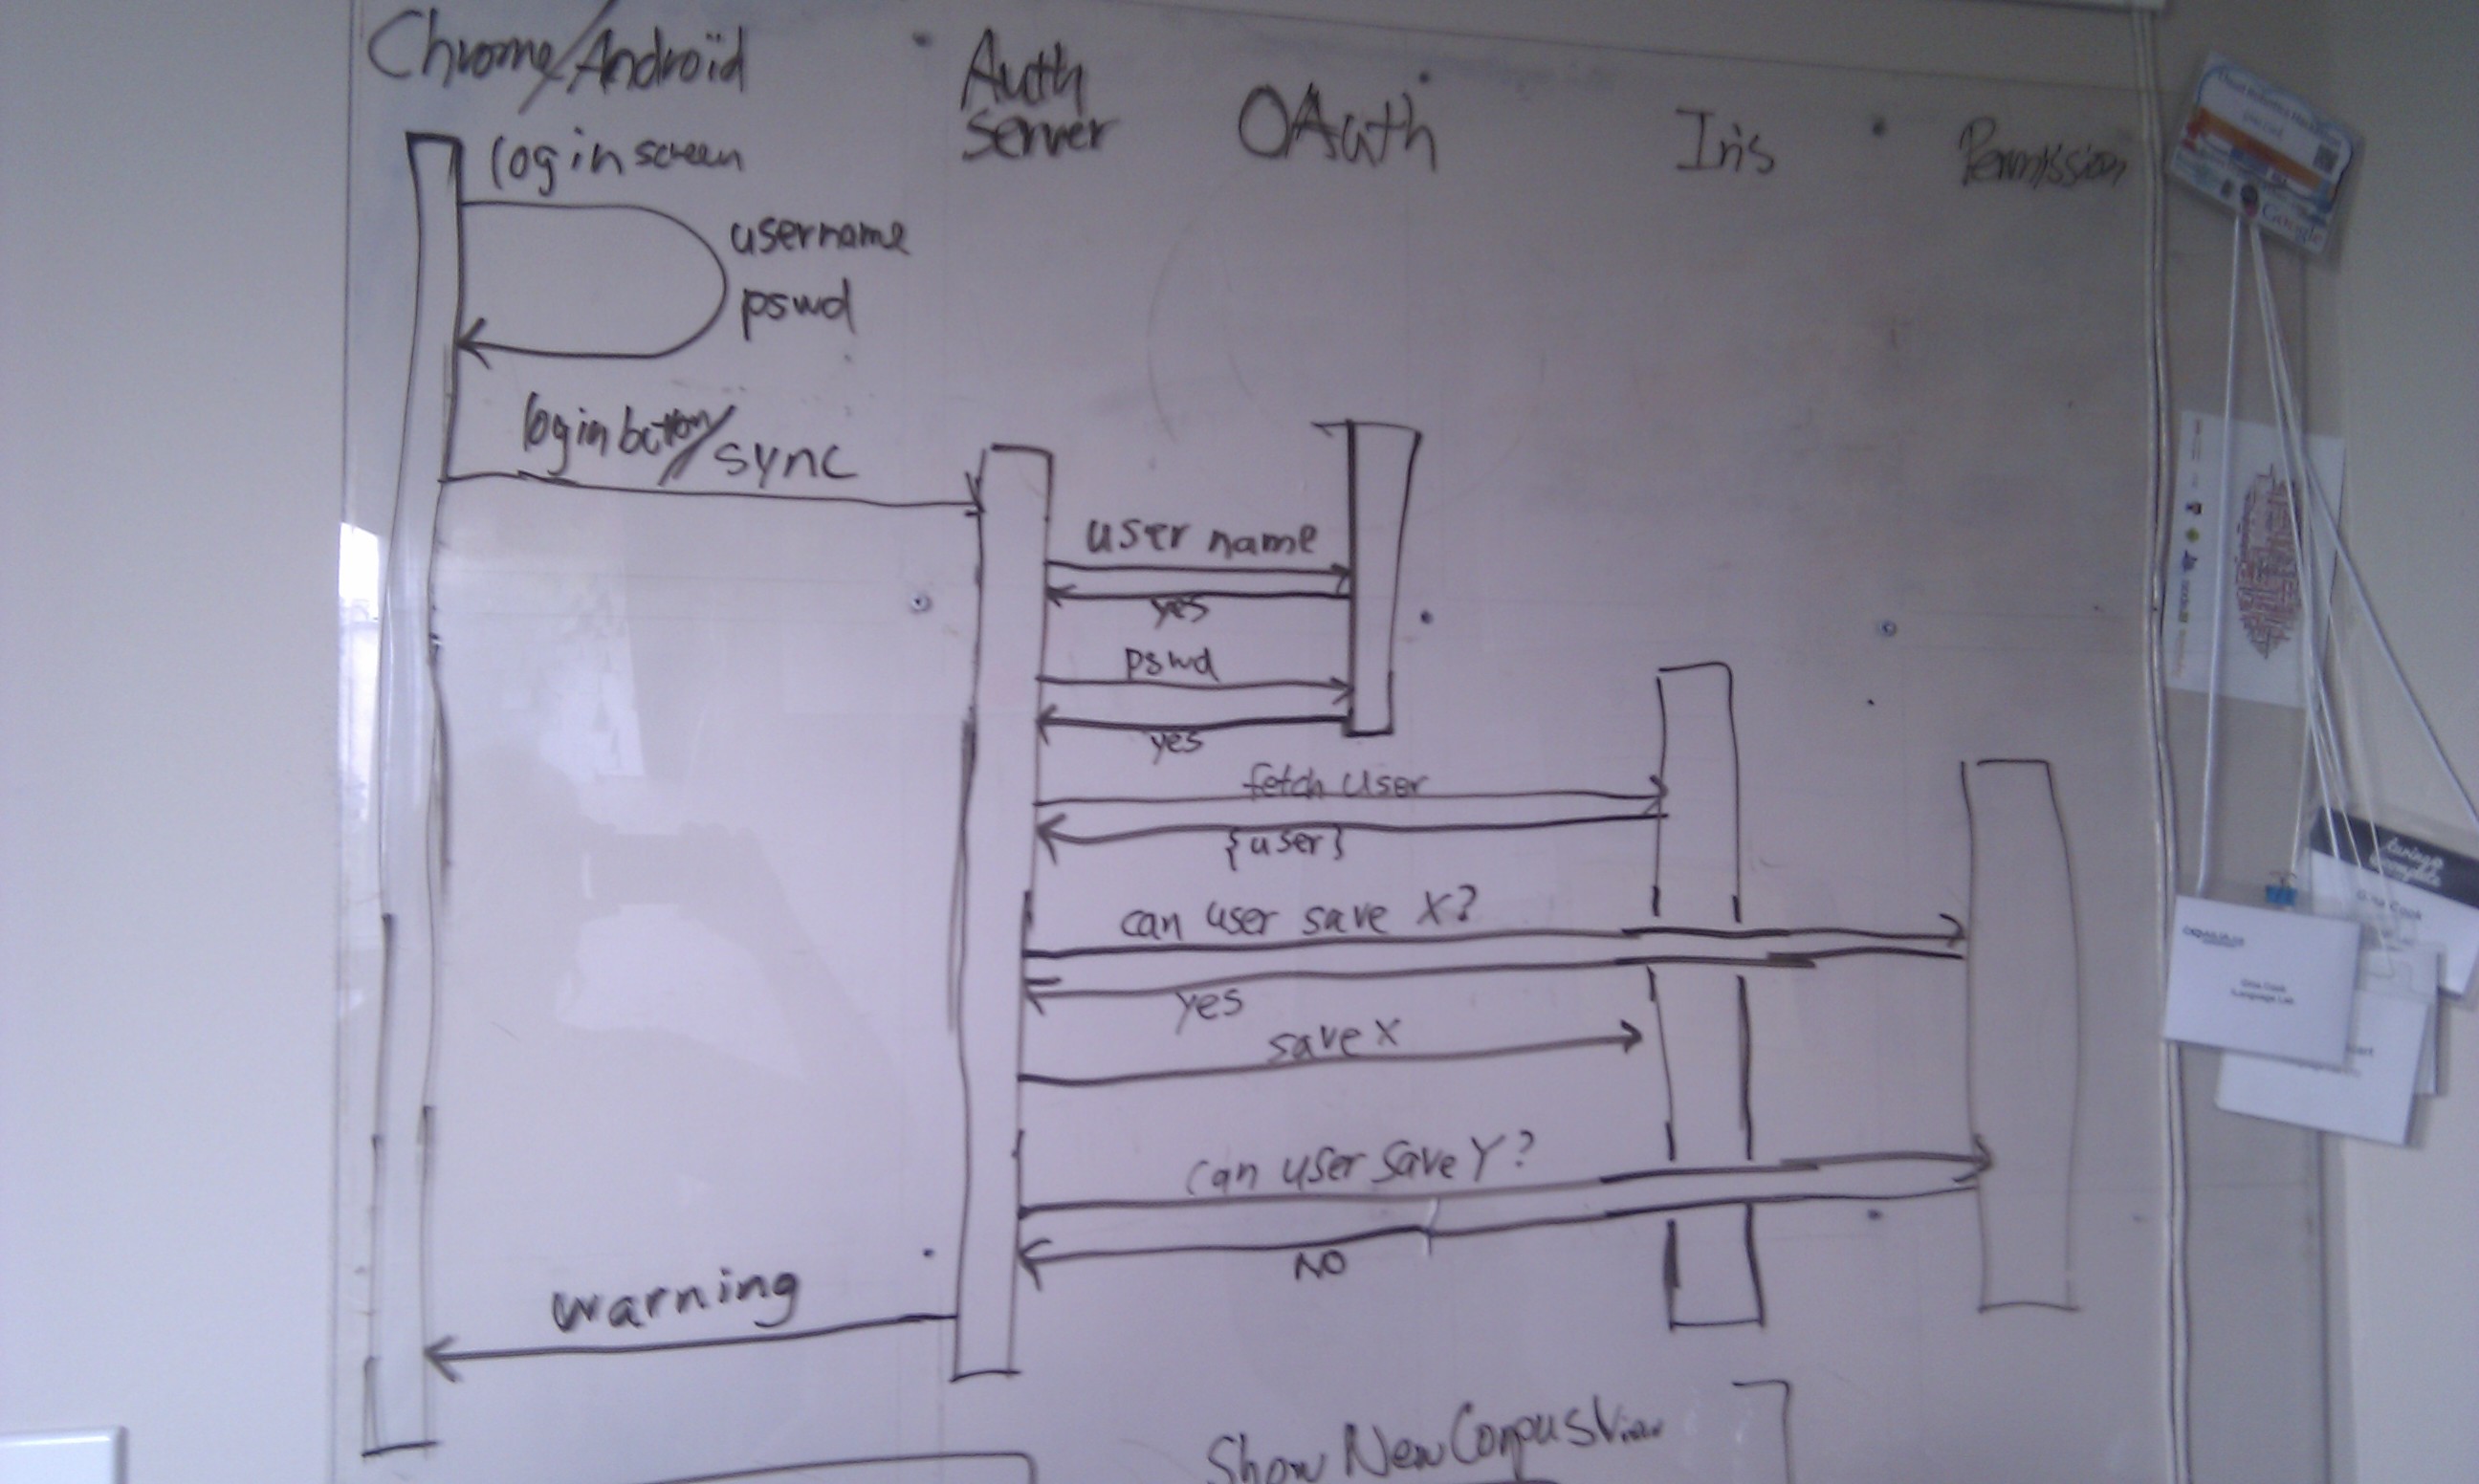 Chrome/Android
Auth
Server
OAuth
Iris
Permission
log in screen
username
pswd
log in button/sync
user name
yes
pswd
yes
fetch user
{user}
can user save X?
yes
save X
can user save Y?
NO
warning
Show New Corpus View
Google
Cook